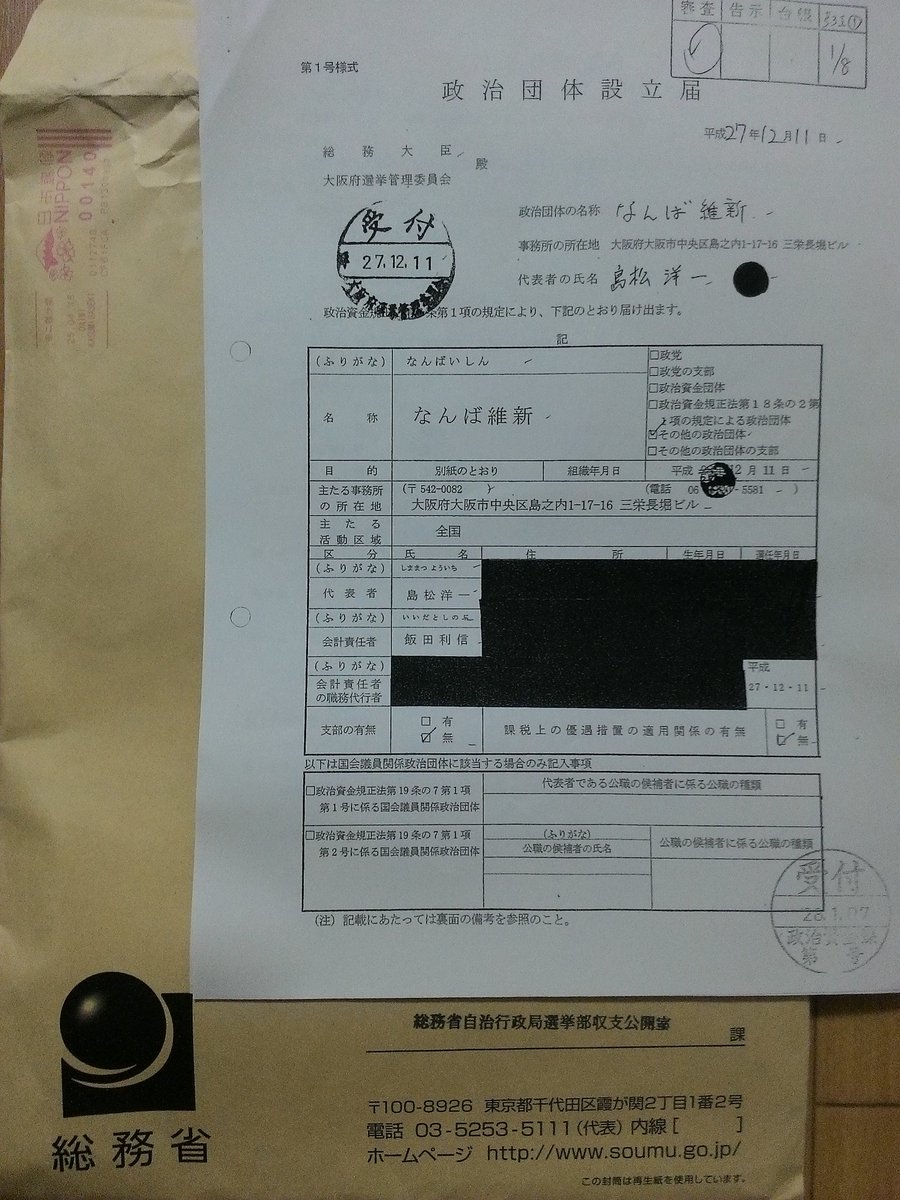 審査 告示 台帳
1/8
第1号様式
政治団体設立届
平成27年12月11日
総務大臣
殿
大阪府選挙管理委員会
受付
27.12.11
大阪府選挙管理委員会
政治団体の名称 なんば維新
事務所の所在地 大阪府大阪市中央区島之内1-17-16 三栄長堀ビル
代表者の氏名 島松洋一
政治資金規 条第1項の規定により、下記のとおり届け出ます。
記
(ふりがな) なんばいしん
名称 なんば維新
□政党
□政党の支部
□政治資金団体
□政治資金規正法第18条の2第
1項の規定による政治団体
☑その他の政治団体
□その他の政治団体の支部
目的 別紙のとおり 組織年月日 平成 12月11日
主たる事務所の所在地 (〒542-0082 ) (電話 06 -5581 )
大阪府大阪市中央区島之内1-17-16 三栄長堀ビル
主たる活動区域 全国
区分 氏名 住所 生年月日 選任年月日
(ふりがな) しままつよういち
代表者 島松洋一
(ふりがな) いいだとしのぶ
会計責任者 飯田利信
(ふりがな) 平成
会計責任者の職務代行者 27・12・11
支部の有無 □有 ☑無 課税上の優遇措置の適用関係の有無 □有 ☑無
以下は国会議員関係政治団体に該当する場合のみ記入事項
□政治資金規正法第19条の7第1項
第1号に係る国会議員関係政治団体
代表者である公職の候補者に係る公職の種類
□政治資金規正法第19条の7第1項
第2号に係る国会議員関係政治団体
(ふりがな)
公職の候補者の氏名
公職の候補者に係る公職の種類
(注)記載にあたっては裏面の備考を参照のこと。
受付
28.1.07
政治資金課
第 号
日本郵便
NIPPON
00140
総務省自治行政局選挙部収支公開室
課
〒100-8926 東京都千代田区霞が関2丁目1番2号
電話 03-5253-5111(代表) 内線[ ]
ホームページ http://www.soumu.go.jp/
総務省
この封筒は再生紙を使用しています。